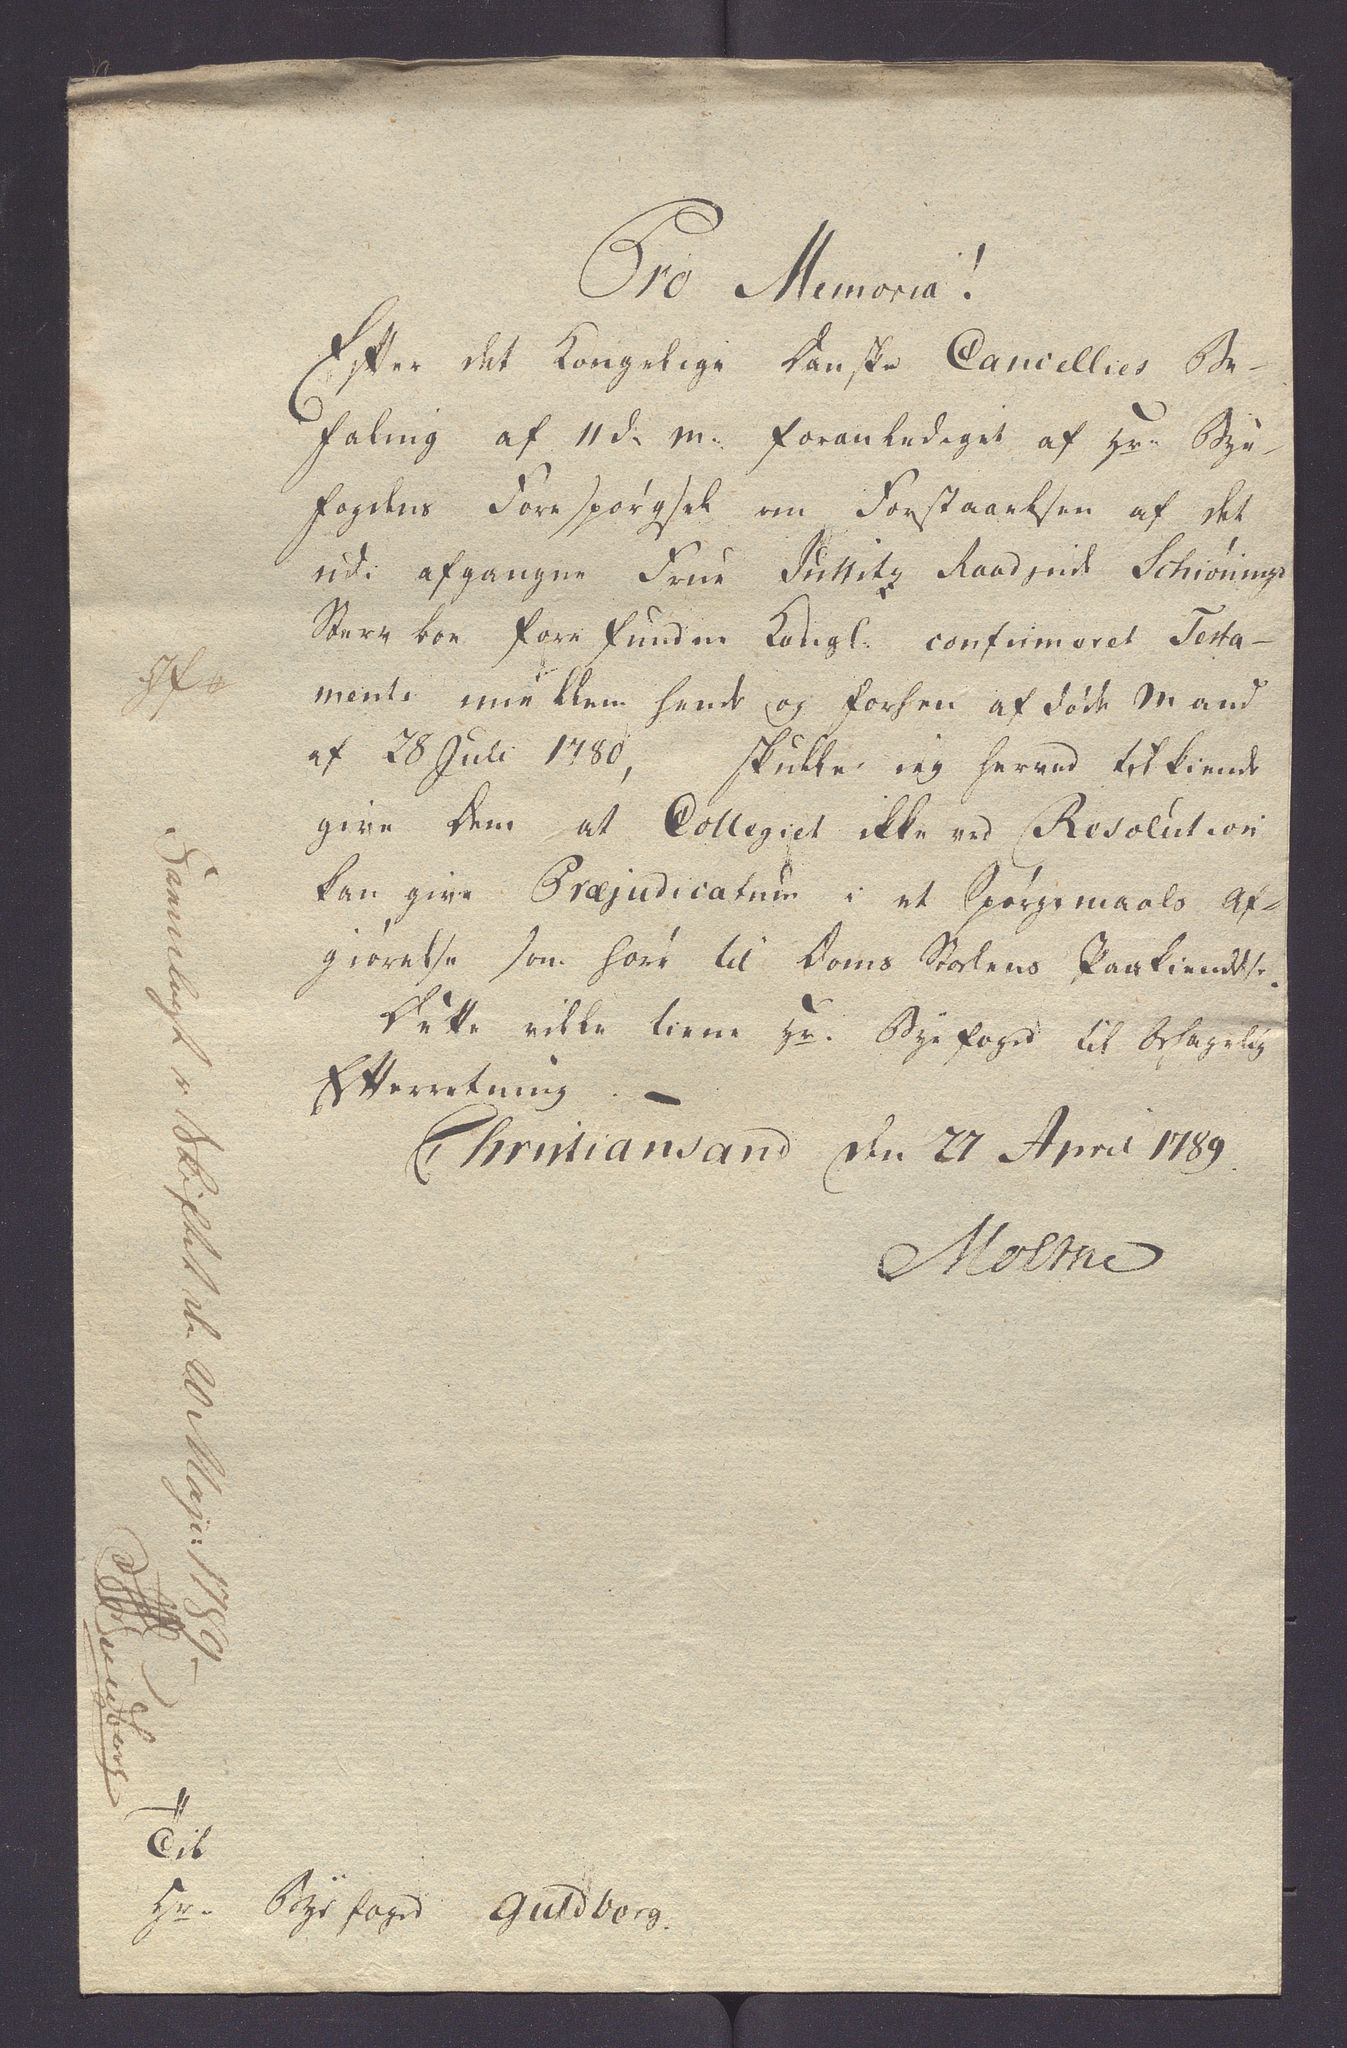 Pro Memoria!
Efter det Kongelige Danske Cancellies Be-
faling af 11 d. m. foranlediget af Hr. Bye-
fogdens Forespørgsel om Forstaaelsen af det
udi afgangne Frue Justitz Raadinde Schiönings
Sterv boe forefundne Kongl. confirmeret Testa-
mente imellem hende og forhen afdøde Mand
af 28 Juli 1780, skulle ieg herved tilkiende
give Dem at Collegiet ikke ved Resolution
kan give Præjudicatum i et Spørgsmaals Af-
giørelse som hører til Doms Stolens Paakiendelse.
Dette ville tiene Hr. Byefoged til behagelig
Efterretning. —
Christiansand den 27 April 1789.
Moltke
Fremlagt i Skiftet d. Maji 1789
Guldberg
Til
Hr. Byefoged Guldberg.